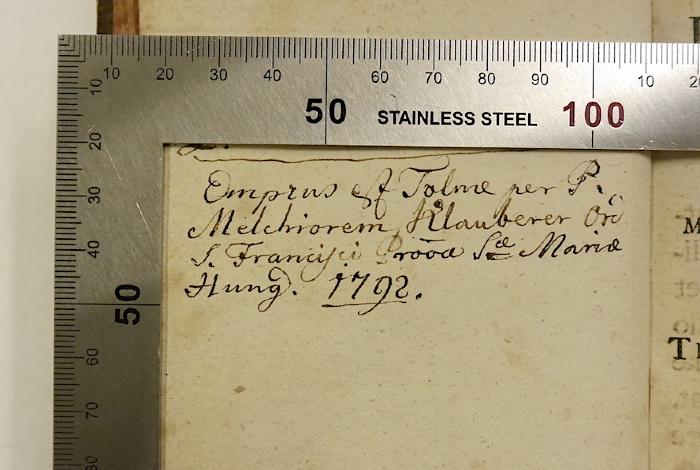 10 20 30 40 50 60 70 80 90 100 10
STAINLESS STEEL
10
20
30
40
50
60
70
80
Emptus est Tolnæ per P.
Melchiorem Klauberer Ord
S. Francisci Provæ Sæ Mariæ
Hung. 1792.
M
T